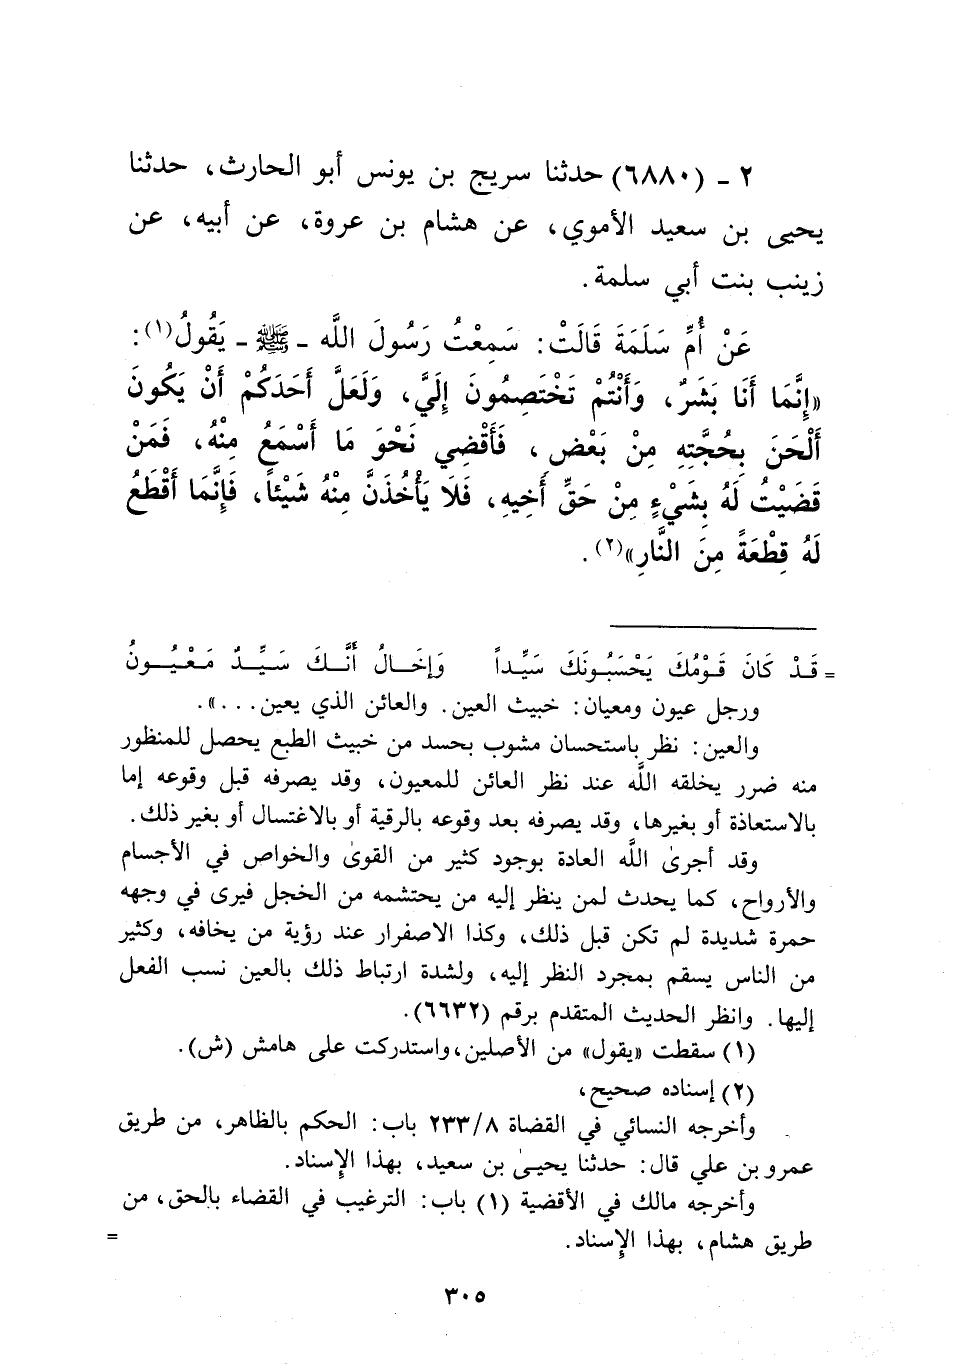 ٢ ـ (٦٨٨٠) حدثنا سريج بن يونس أبو الحارث، حدثنا
يحيى بن سعيد الأموي، عن هشام بن عروة، عن أبيه، عن
زينب بنت أبي سلمة.
عَنْ أُمِّ سَلَمَةَ قَالَتْ: سَمِعْتُ رَسُولَ اللَّه ـ ﷺ ـ يَقُولُ(١):
«إِنَّمَا أَنَا بَشَرٌ، وَأَنْتُمْ تَخْتَصِمُونَ إِلَيَّ، وَلَعَلَّ أَحَدَكُمْ أَنْ يَكُونَ
أَلْحَنَ بِحُجَّتِهِ مِنْ بَعْضٍ، فَأَقْضِي نَحْوَ مَا أَسْمَعُ مِنْهُ، فَمَنْ
قَضَيْتُ لَهُ بِشَيْءٍ مِنْ حَقِّ أَخِيهِ، فَلَا يَأْخُذَنَّ مِنْهُ شَيْئاً، فَإِنَّمَا أَقْطَعُ
لَهُ قِطْعَةً مِنَ النَّارِ»(٢).
= قَدْ كَانَ قَوْمُكَ يَحْسَبُونَكَ سَيِّداً وَإِخَالُ أَنَّكَ سَيِّدٌ مَعْيُونُ
ورجل عيون ومعيان: خبيث العين. والعائن الذي يعين...».
والعين: نظر باستحسان مشوب بحسد من خبيث الطبع يحصل للمنظور
منه ضرر يخلقه اللَّه عند نظر العائن للمعيون، وقد يصرفه قبل وقوعه إما
بالاستعاذة أو بغيرها، وقد يصرفه بعد وقوعه بالرقية أو بالاغتسال أو بغير ذلك.
وقد أجرىٰ اللَّه العادة بوجود كثير من القوىٰ والخواص في الأجسام
والأرواح، كما يحدث لمن ينظر إليه من يحتشمه من الخجل فيرى في وجهه
حمرة شديدة لم تكن قبل ذلك، وكذا الاصفرار عند رؤية من يخافه، وكثير
من الناس يسقم بمجرد النظر إليه، ولشدة ارتباط ذلك بالعين نسب الفعل
إليها. وانظر الحديث المتقدم برقم (٦٦٣٢).
(١) سقطت «يقول» من الأصلين، واستدركت على هامش (ش).
(٢) إسناده صحيح،
وأخرجه النسائي في القضاة ٢٣٣/٨ باب: الحكم بالظاهر، من طريق
عمرو بن علي قال: حدثنا يحيىٰ بن سعيد، بهذا الإسناد.
وأخرجه مالك في الأقضية (١) باب: الترغيب في القضاء بالحق، من
طريق هشام، بهذا الإسناد. =
٣٠٥